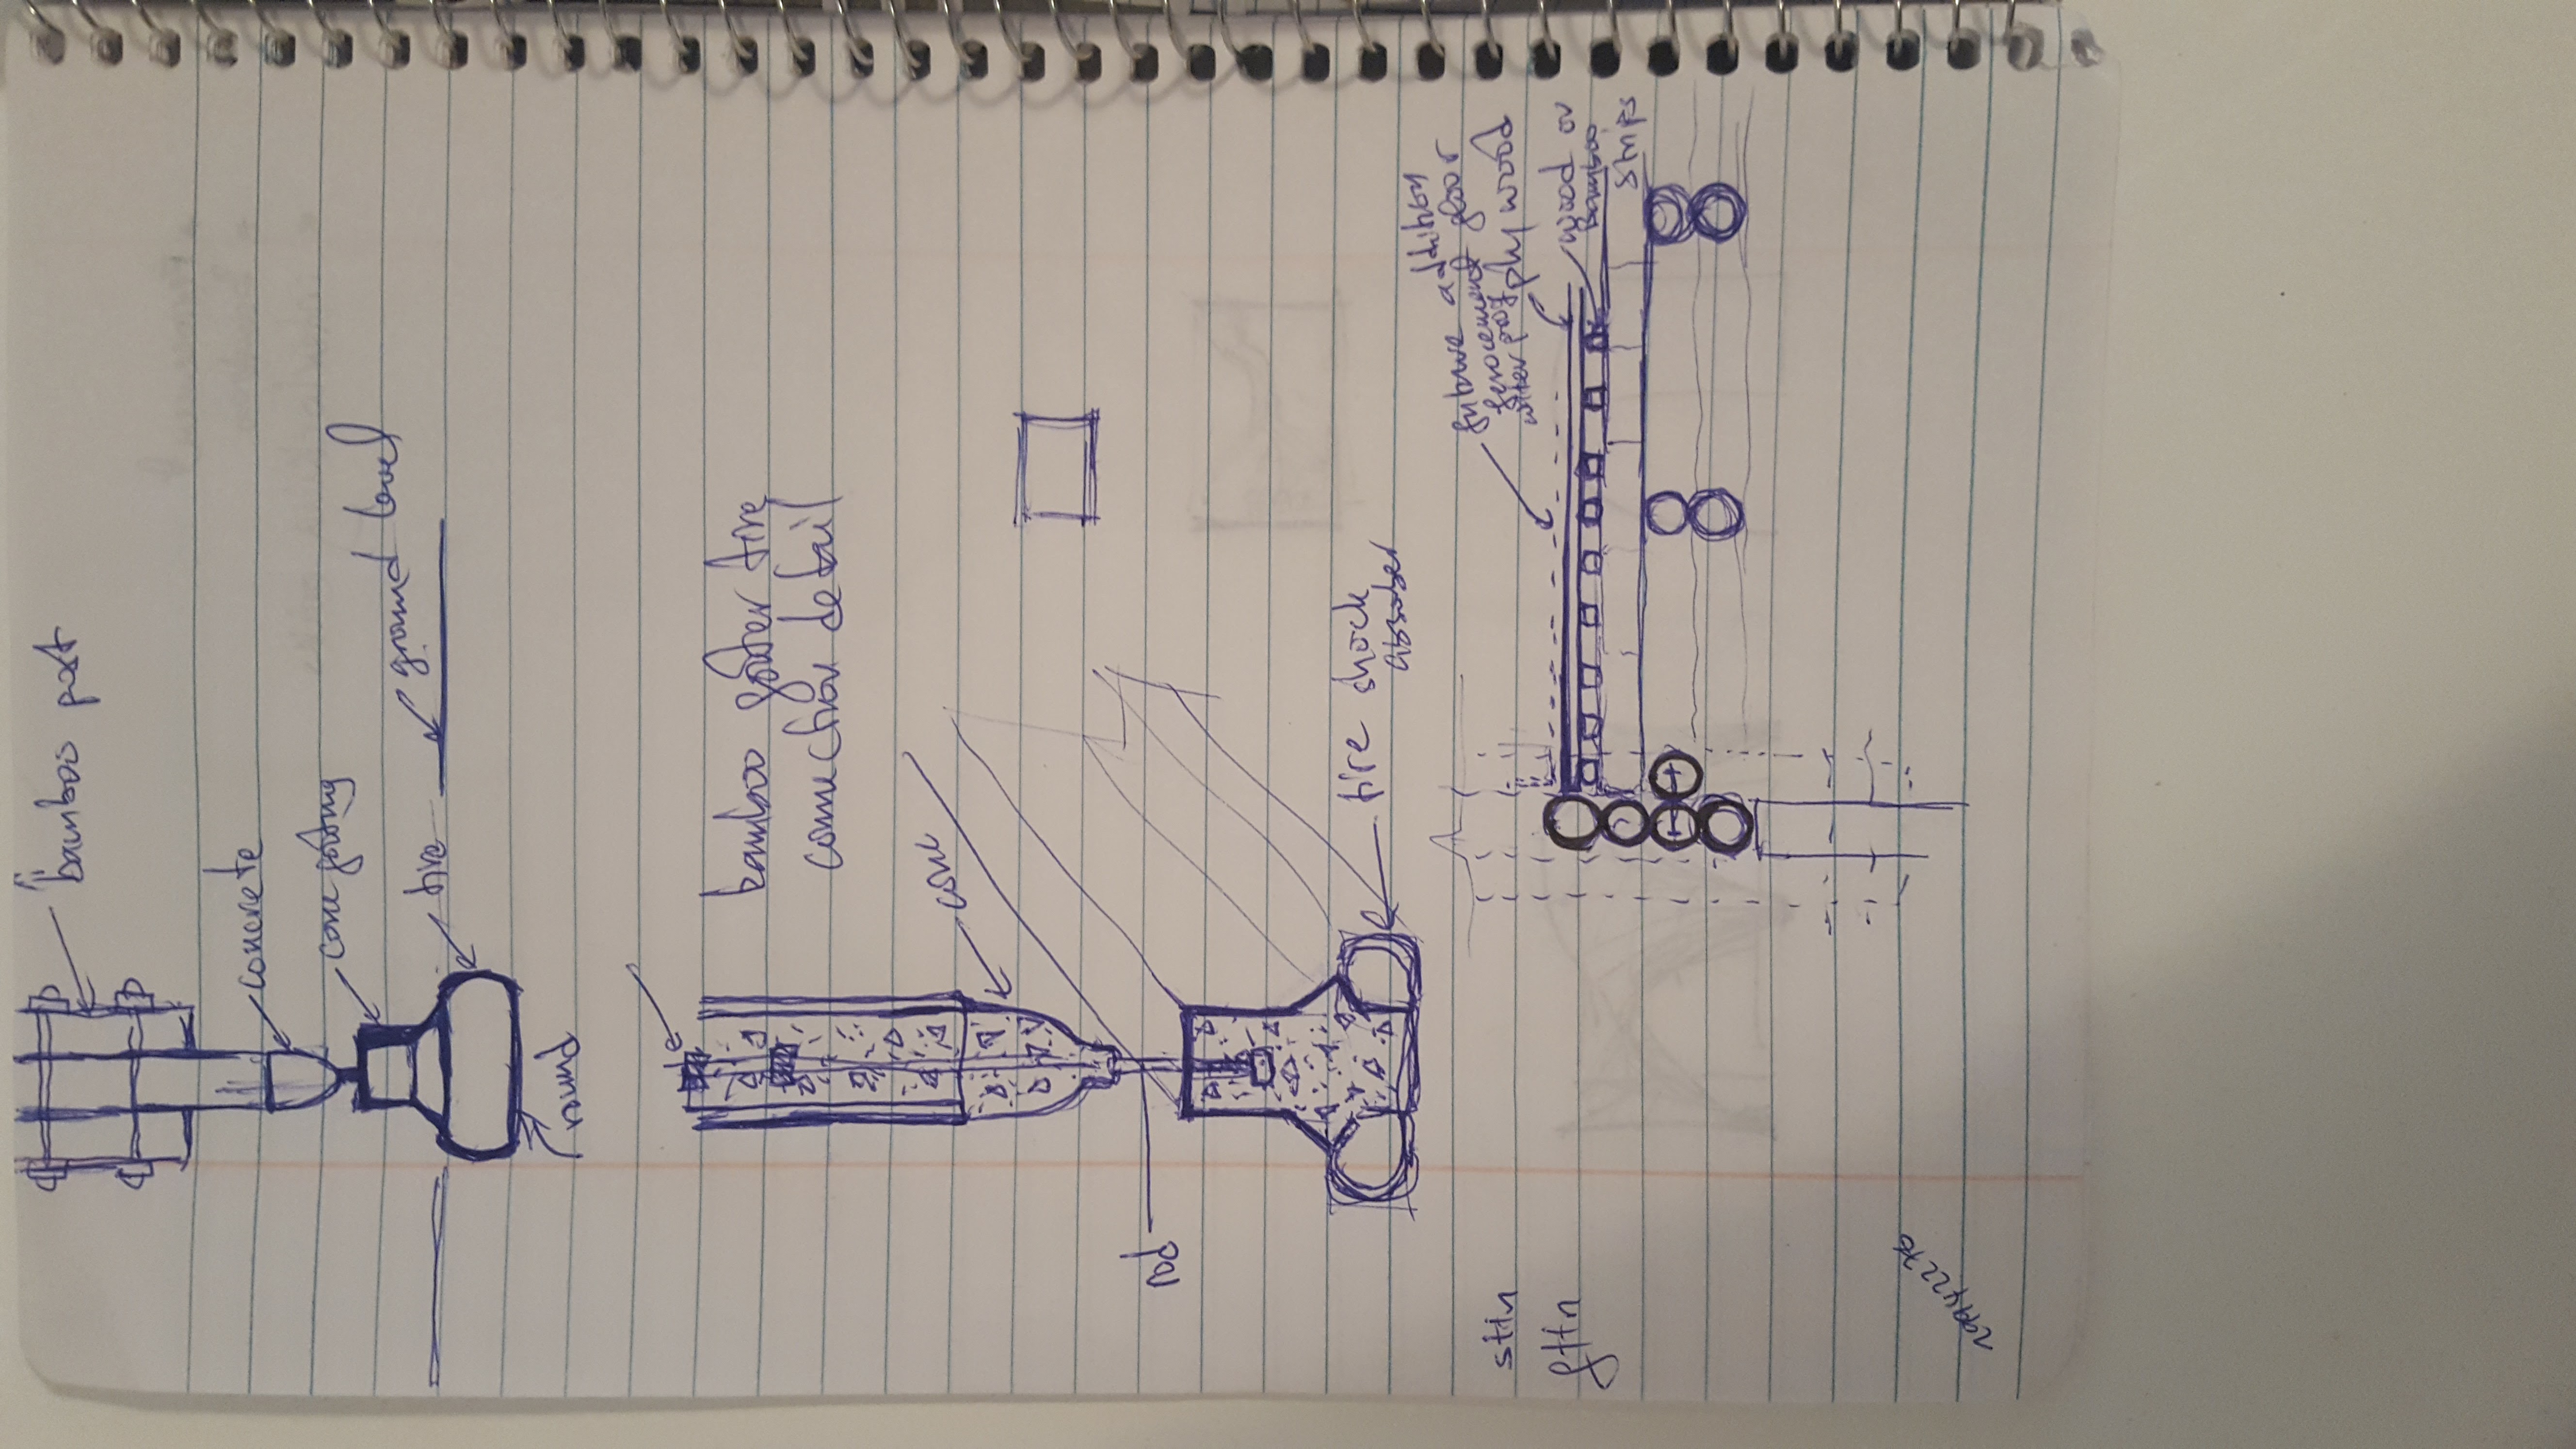 bamboo post
concrete
conc footing
tire
ground level
round
bamboo footer tire
connection detail
conc
rod
tire shock
absober
future addition
ferocement floor
water proof
plywood
wood or
Bamboo
strips
29942276